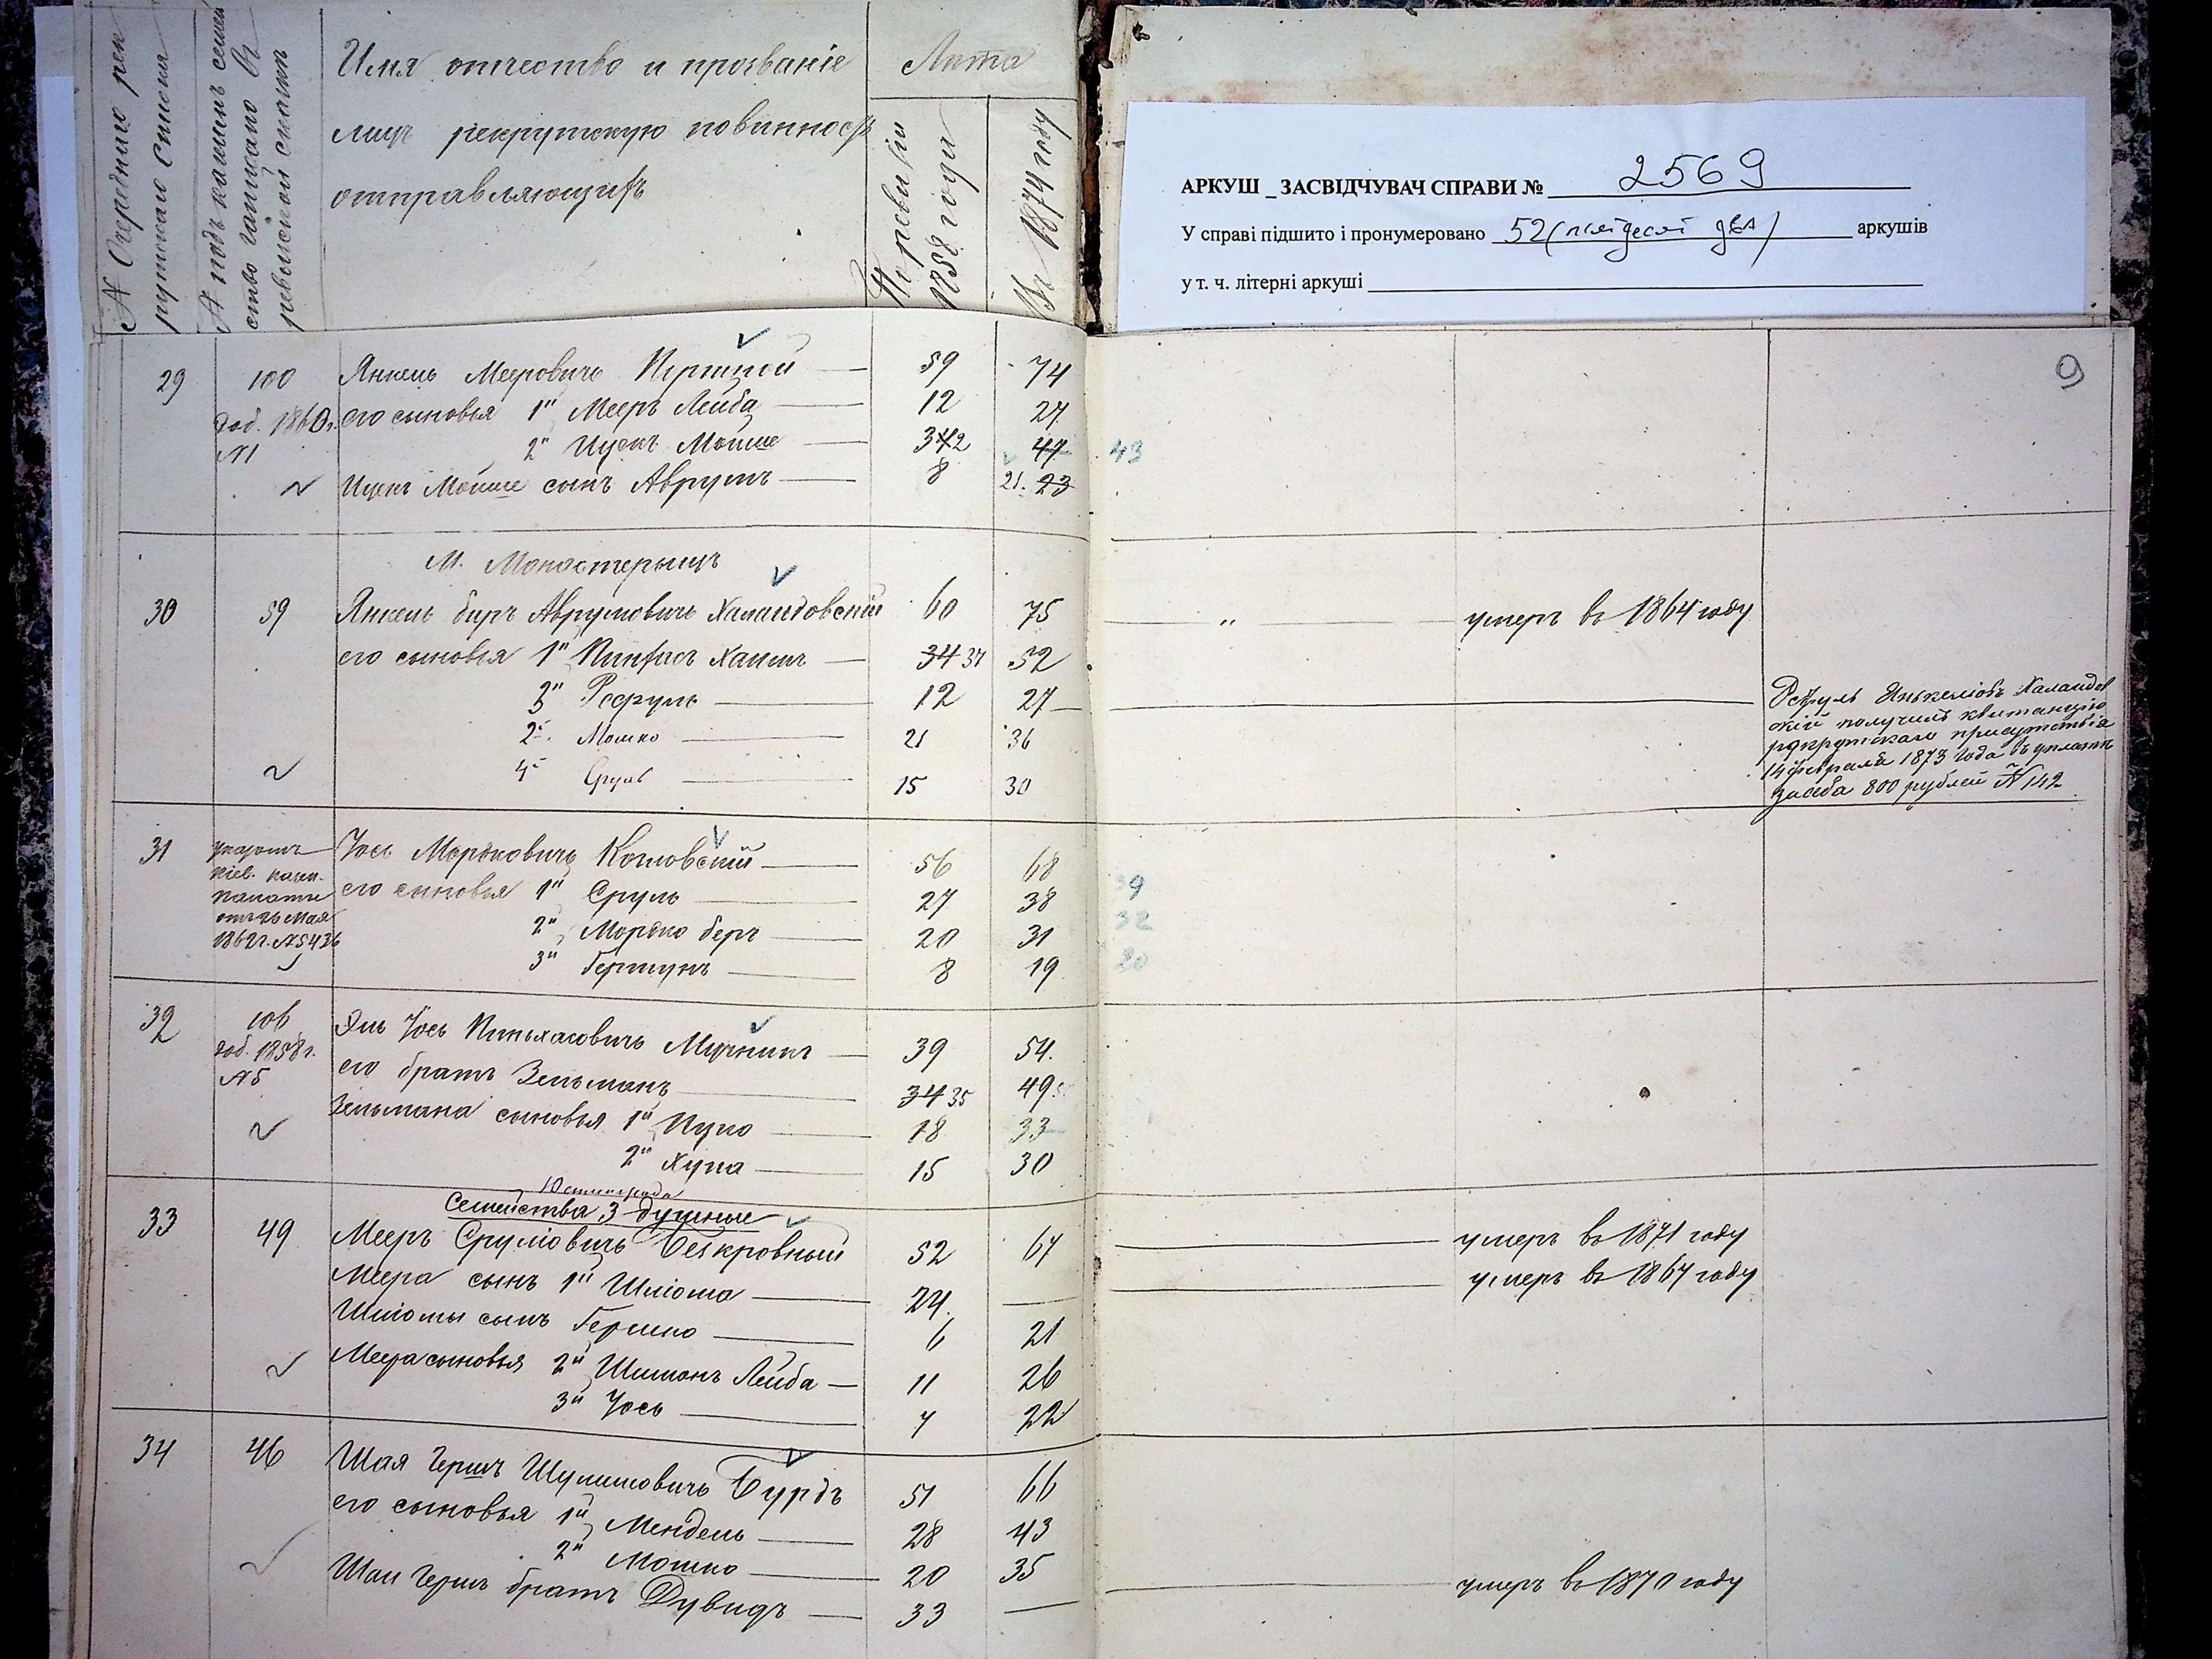 № Очереднаго рек
рутскаго списка
№ подъ какимъ семей
ство записано въ
ревизской сказкѣ
Имя отчество и прозваніе
лицъ рекрутскую повинность
отправляющихъ
Лѣта
По ревизіи
1858 года
Въ 1874 году
АРКУШ _ ЗАСВІДЧУВАЧ СПРАВИ № 2569
У справі підшито і пронумеровано 52 (пятдесят два) аркушів
у т. ч. літерні аркуші
9
29 100 Янкель Мееровичъ 59 74
доп. 1860 г. его сыновья 1й Мееръ Лейба 12 27
№1 2й Ицекъ Мойше 34 42 47 43
Ицекъ Мойше сынъ Аврумъ 8 21. 23
М. Монастерыщъ
30 59 Янкель беръ Аврумовичъ Халаидовскій 60 75 " умеръ въ 1864 году
его сыновья 1й Пинхасъ Хаимъ 34 37 52
3й Рефуль 12 27
2й Мошко 21 36
4й Сруль 15 30
Рефуль Янкеліовъ Халаидов
скій получилъ квитанцію
рекрутскаго присутствія
14 февраля 1873 года въ уплатѣ
за себя 800 рублей № 142
31 указомъ Іось Мордковичъ Козловскій 56 68
Кіев. казен. его сыновья 1й Сруль 27 38 39
палаты 2й Мордко беръ 20 31 32
отъ 26 Мая 3й Гершунъ 8 19 20
1862 г. №5436
32 106 Эль Іось Пинхасовичъ Мучникъ 39 54.
доп. 1858 г. его братъ Зельманъ 34 35 49
№5 Зельмана сыновья 1й Нухо 18 33
2й Хуна 15 30
Юстинграда
Семейства 3 душные
33 49 Мееръ Сруліовичъ Безкровный 52 67 умеръ въ 1871 году
Меера сынъ 1й Шліома 24. умеръ въ 1867 году
Шліомы сынъ Гершко 6 21
Меера сыновья 2й Шимонъ Лейба 11 26
3й Іось 7 22
34 46 Шая Гершъ Шулимовичъ Бурдъ 51 66
его сыновья 1й Мендель 28 43
2й Мошко 20 35
Шаи Герша братъ Дувидъ 33 умеръ въ 1870 году